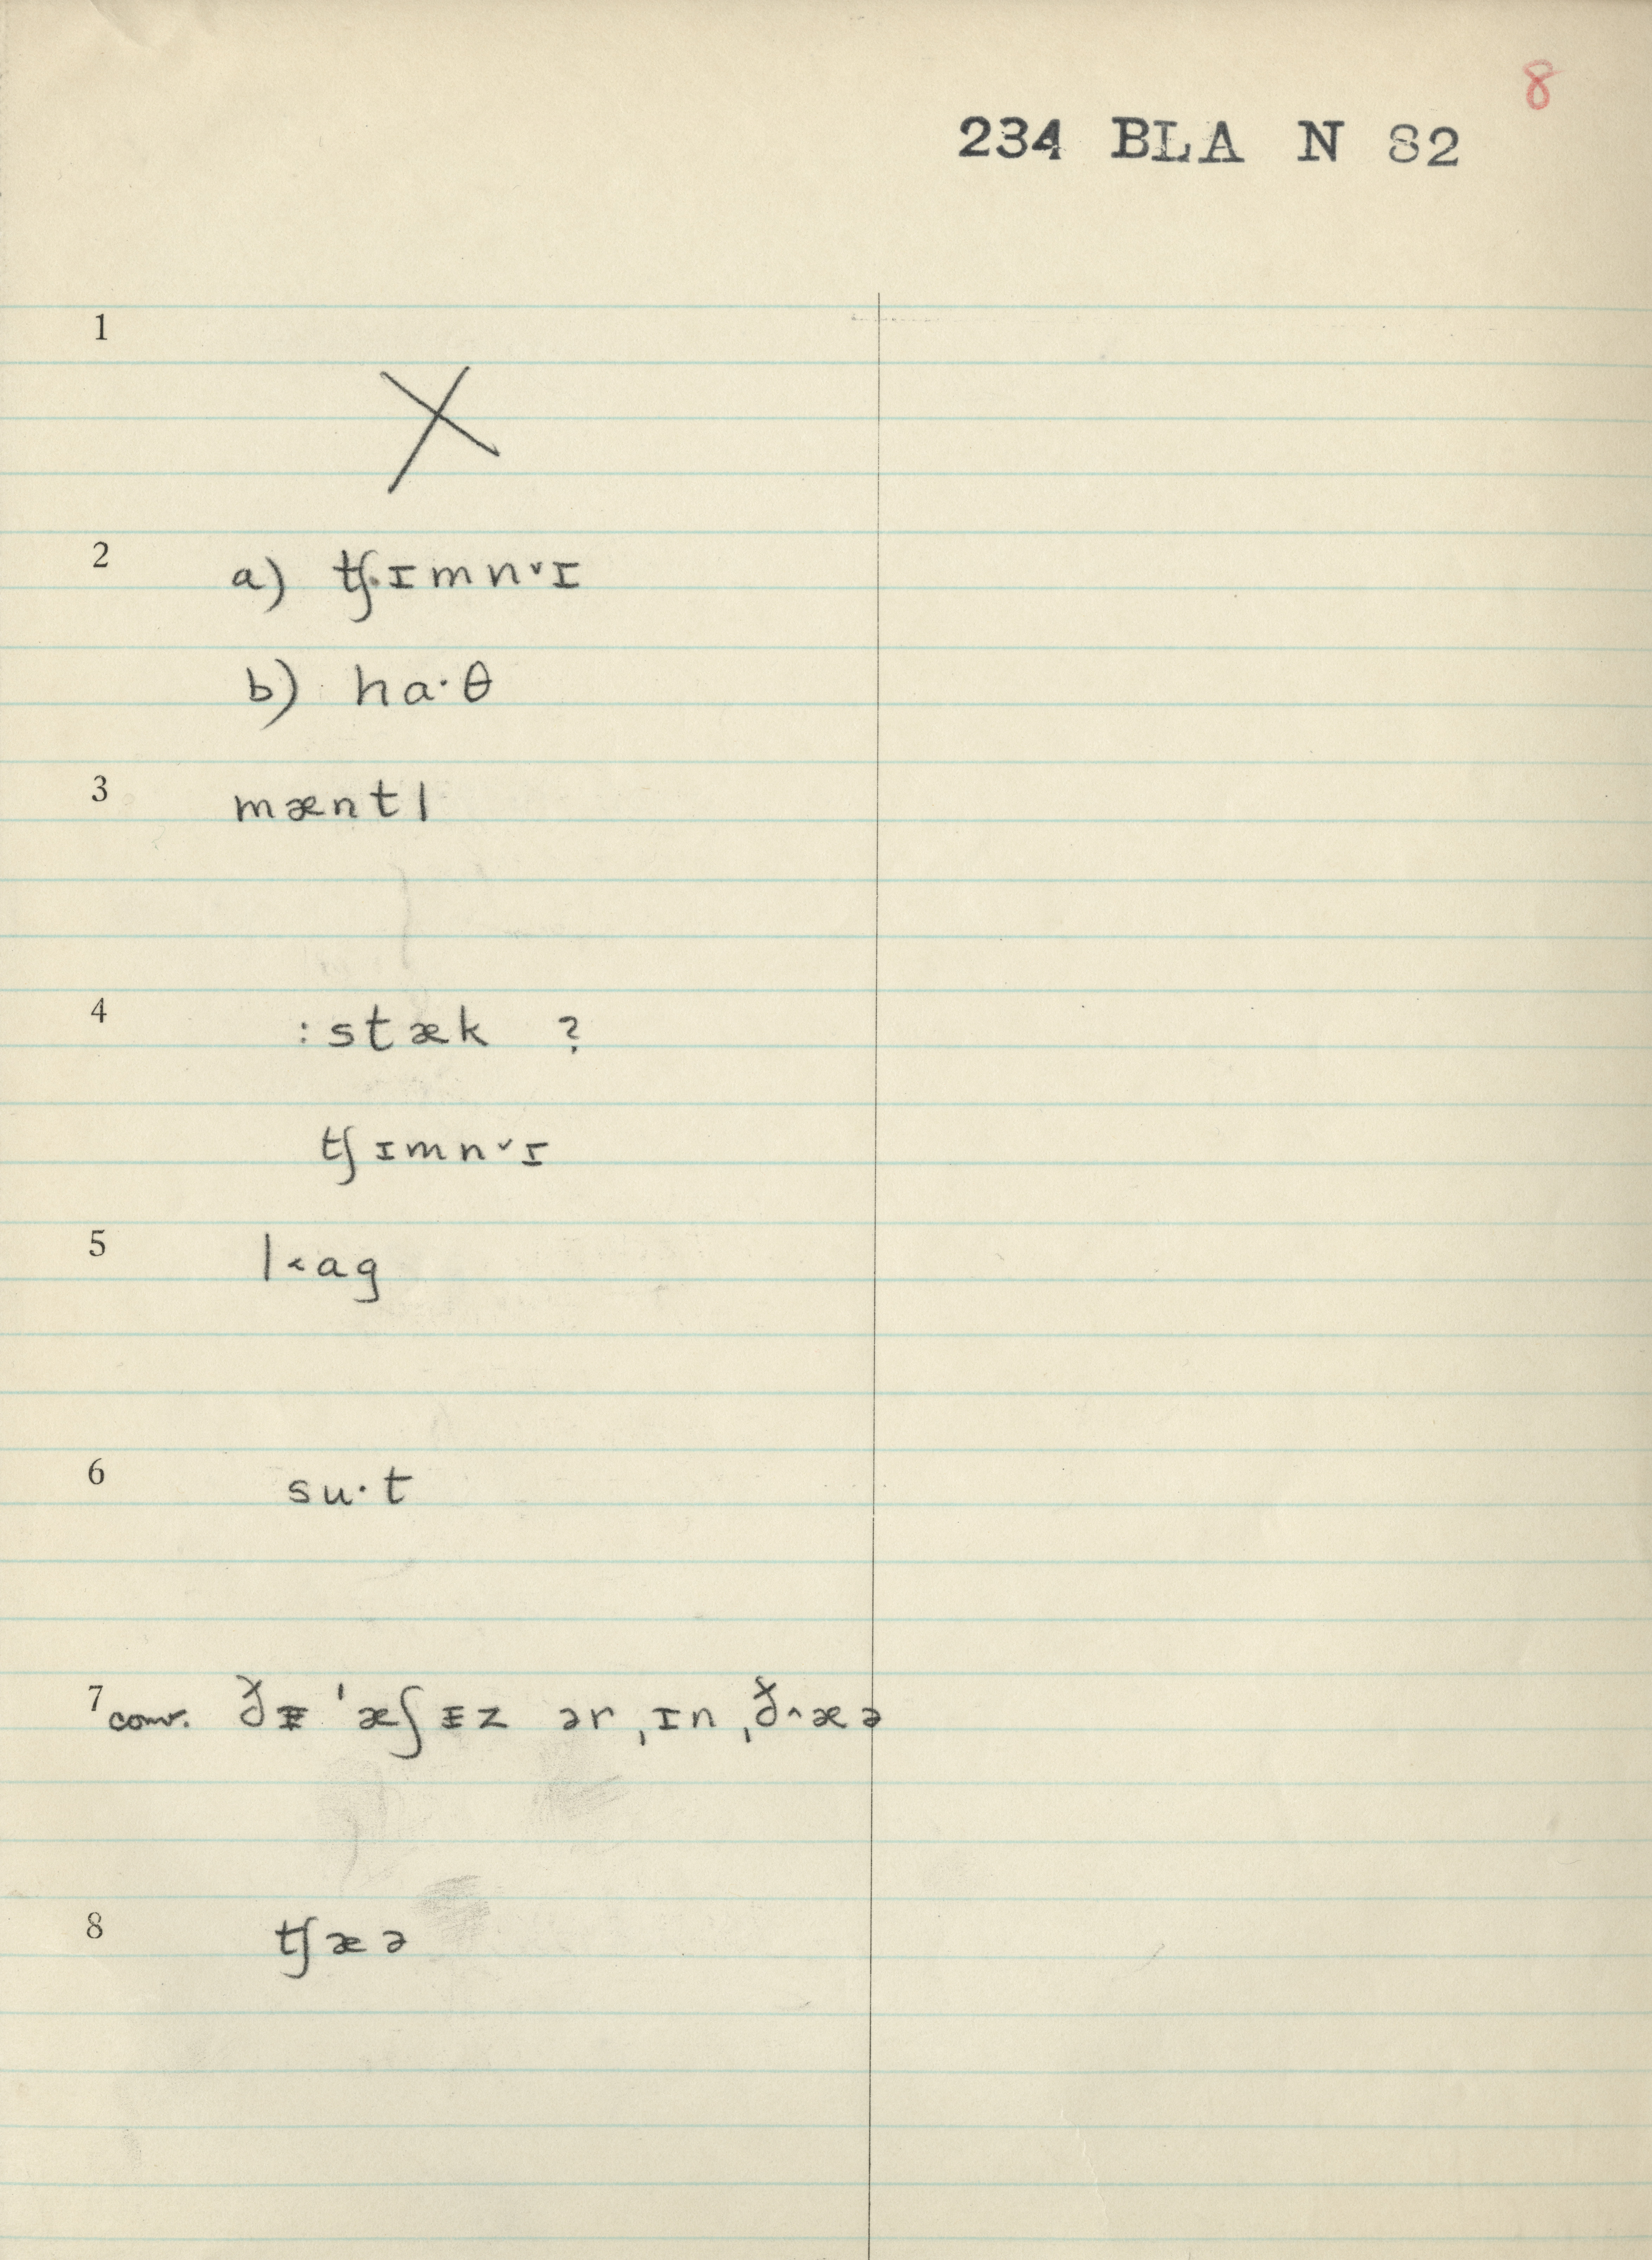 8
234 BLA N 82
1
X
2 a) tʃ.ɪmn˅ɪ
b) ha·θ
3 mæntl
4 :stæk ?
tʃɪmn˅ɪ
5 l˂ag
6 su·t
7 conv. ðᵻ 'æʃᵻz ər ˌɪn ˌð^æə
8 tʃæə